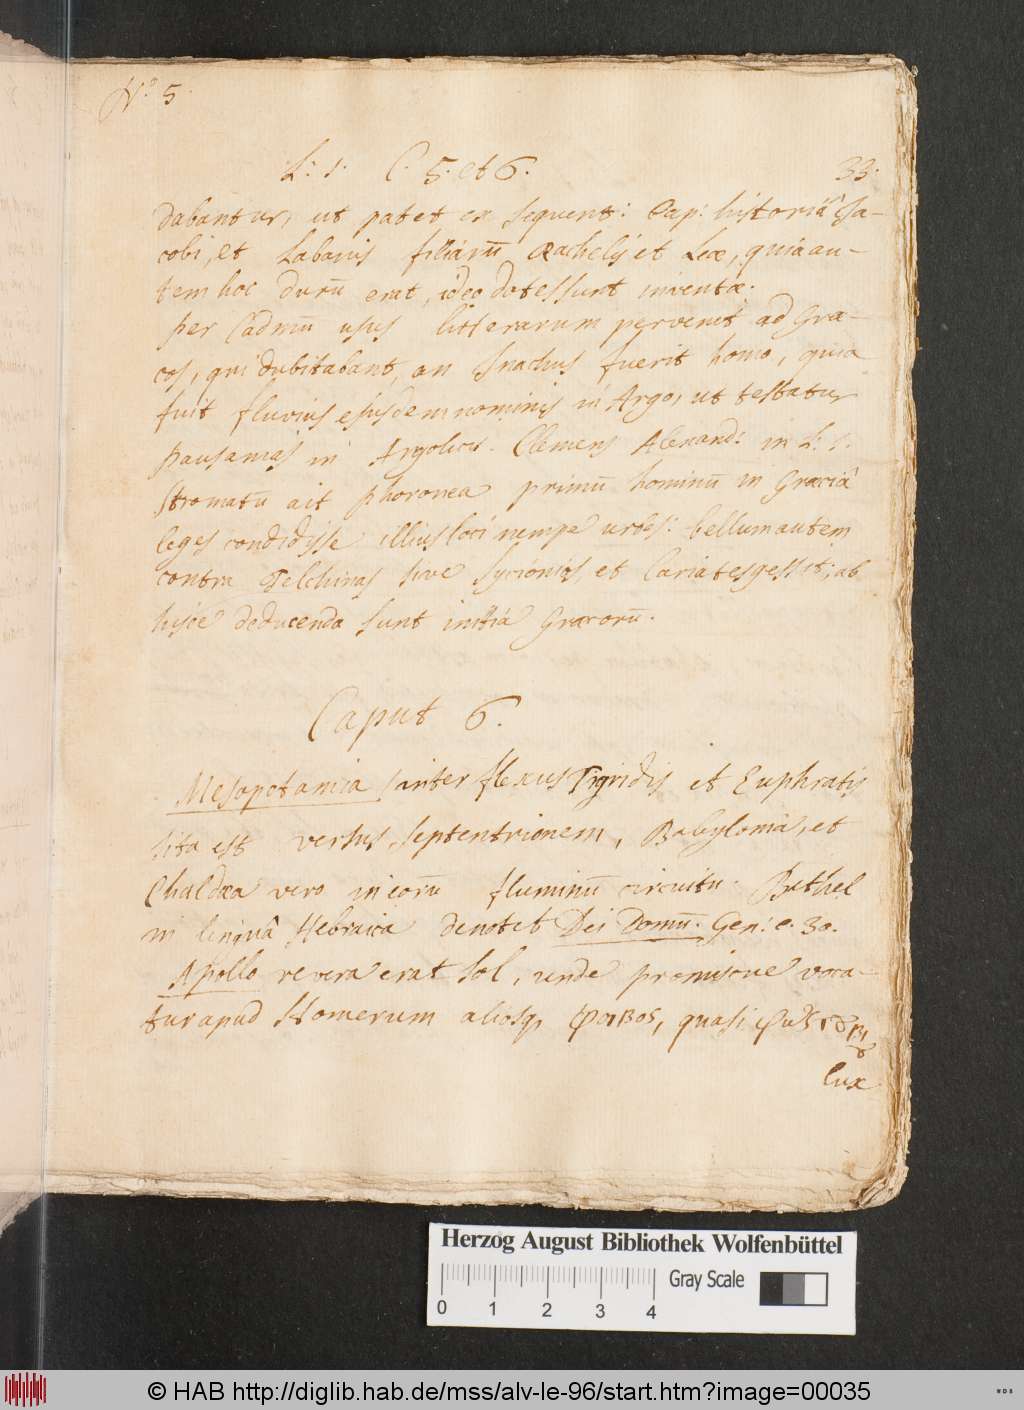 No 5.
L: 1. C. 5. et 6. 33.
dabantur, ut patet ex sequent: Cap: historiâ Ja-
cobi, et Labanis filiarū Rachelis et Leæ, quia au-
tem hoc durū erat, ideo dotes sunt inventæ.
Per Cadmū usus litterarum pervenit ad Græ-
cos, qui dubitabant, an Inachus fuerit homo, quia
fuit fluvius ejusdem nominis in Argo, ut testatur
Pausanias in Argolicis. Clemens Alexand: in L: 1.
Stromatū ait Phoronea primū hominū in Græciâ
leges condidisse illius loci nempe urbes: bellum autem
contra Telchinas sive Sycionios, et Cariates gessit; ab
hisce deducenda sunt initia Græcorū.
Caput 6.
Mesopotamia inter flexus Tigridis et Euphratis
sita est versus Septentrionem, Babylonia, et
Chaldæa vero in eorū fluminū circuitu. Bethel
in linguâ Hebraica denotet Dei Domū. Gen: c. 30.
Apollo revera erat Sol, unde promiscue voca-
tur apud Homerum aliosq φοιβος, quasi φῶς τοῦ βί
ου
lux
Herzog August Bibliothek Wolfenbüttel
Gray Scale
0 1 2 3 4
© HAB http://diglib.hab.de/mss/alv-le-96/start.htm?image=00035